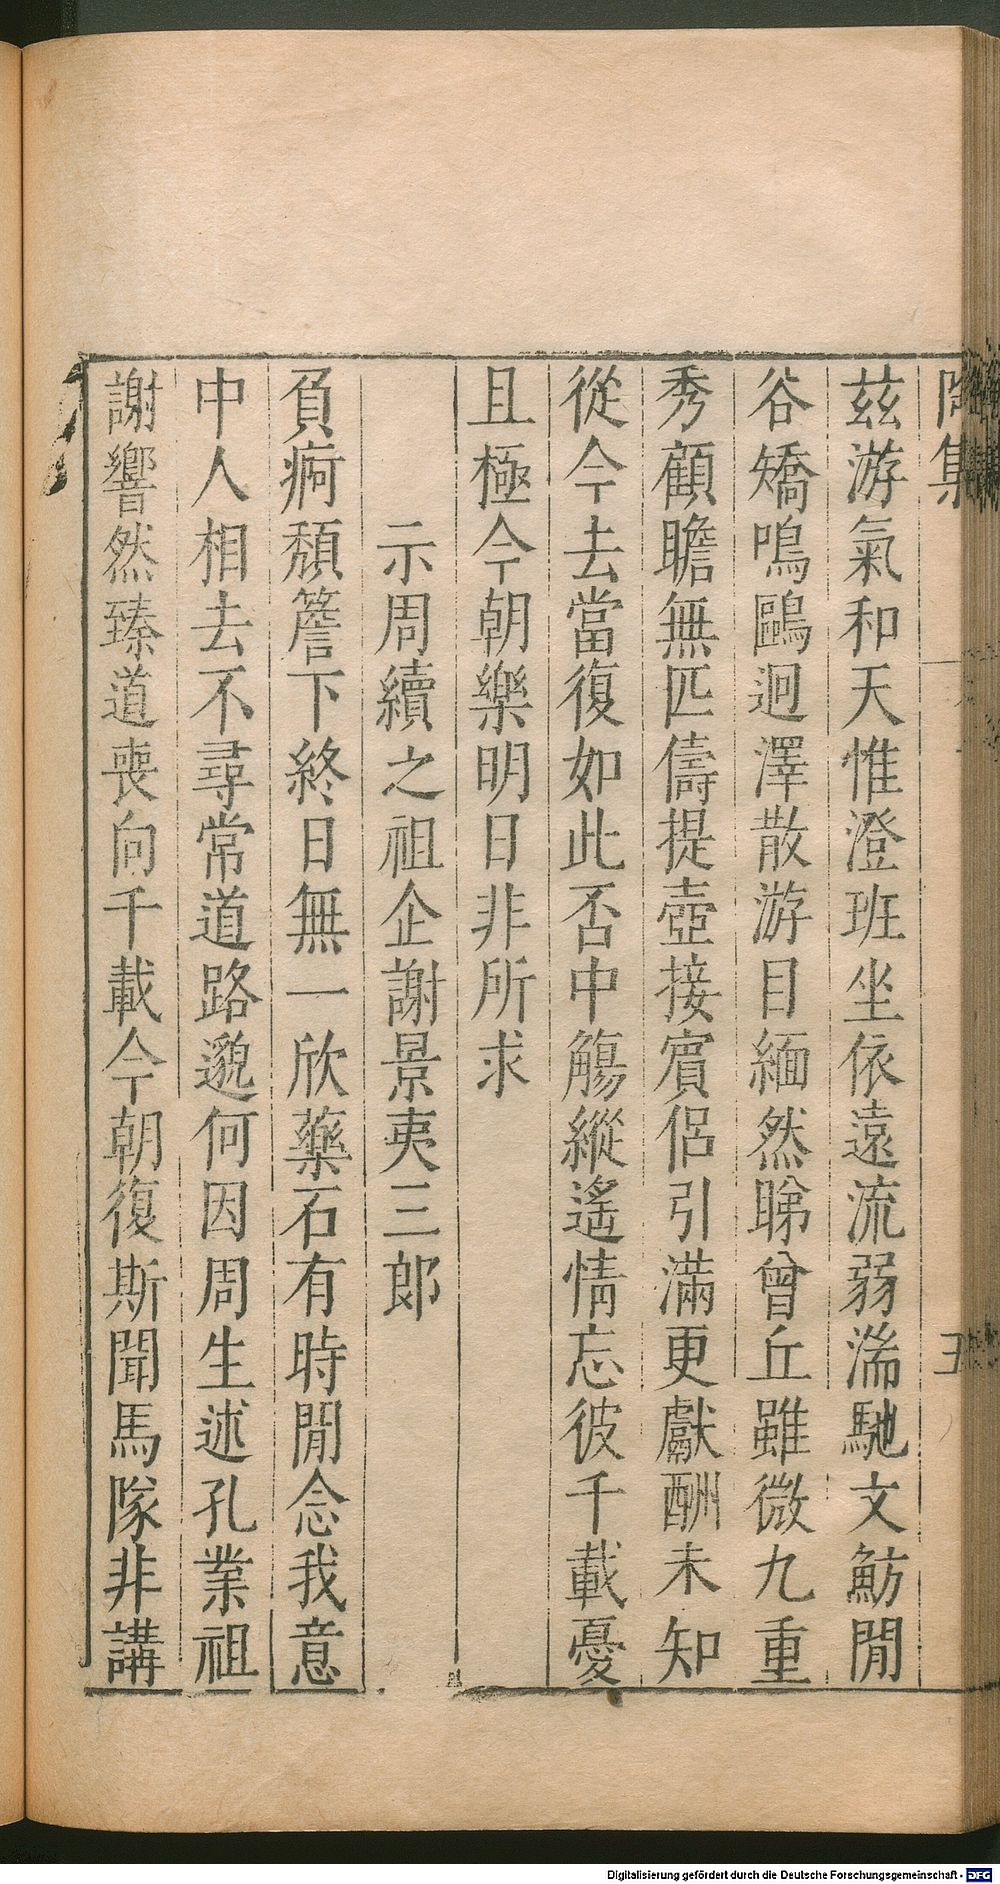 陶集
茲游氣和天惟澄班坐依遠流弱湍馳文魴閒
谷矯鳴鷗迥澤散游目緬然睇曾丘雖微九重
秀顧瞻無匹儔提壺接賓侶引滿更獻酬未知
從今去當復如此否中觴縱遙情忘彼千載憂
且極今朝樂明日非所求
示周續之祖企謝景夷三郎
負痾頹簷下終日無一欣藥石有時閒念我意
中人相去不尋常道路邈何因周生述孔業祖
謝響然臻道喪向千載今朝復斯聞馬隊非講
Digitalisierung gefördert durch die Deutsche Forschungsgemeinschaft - DFG